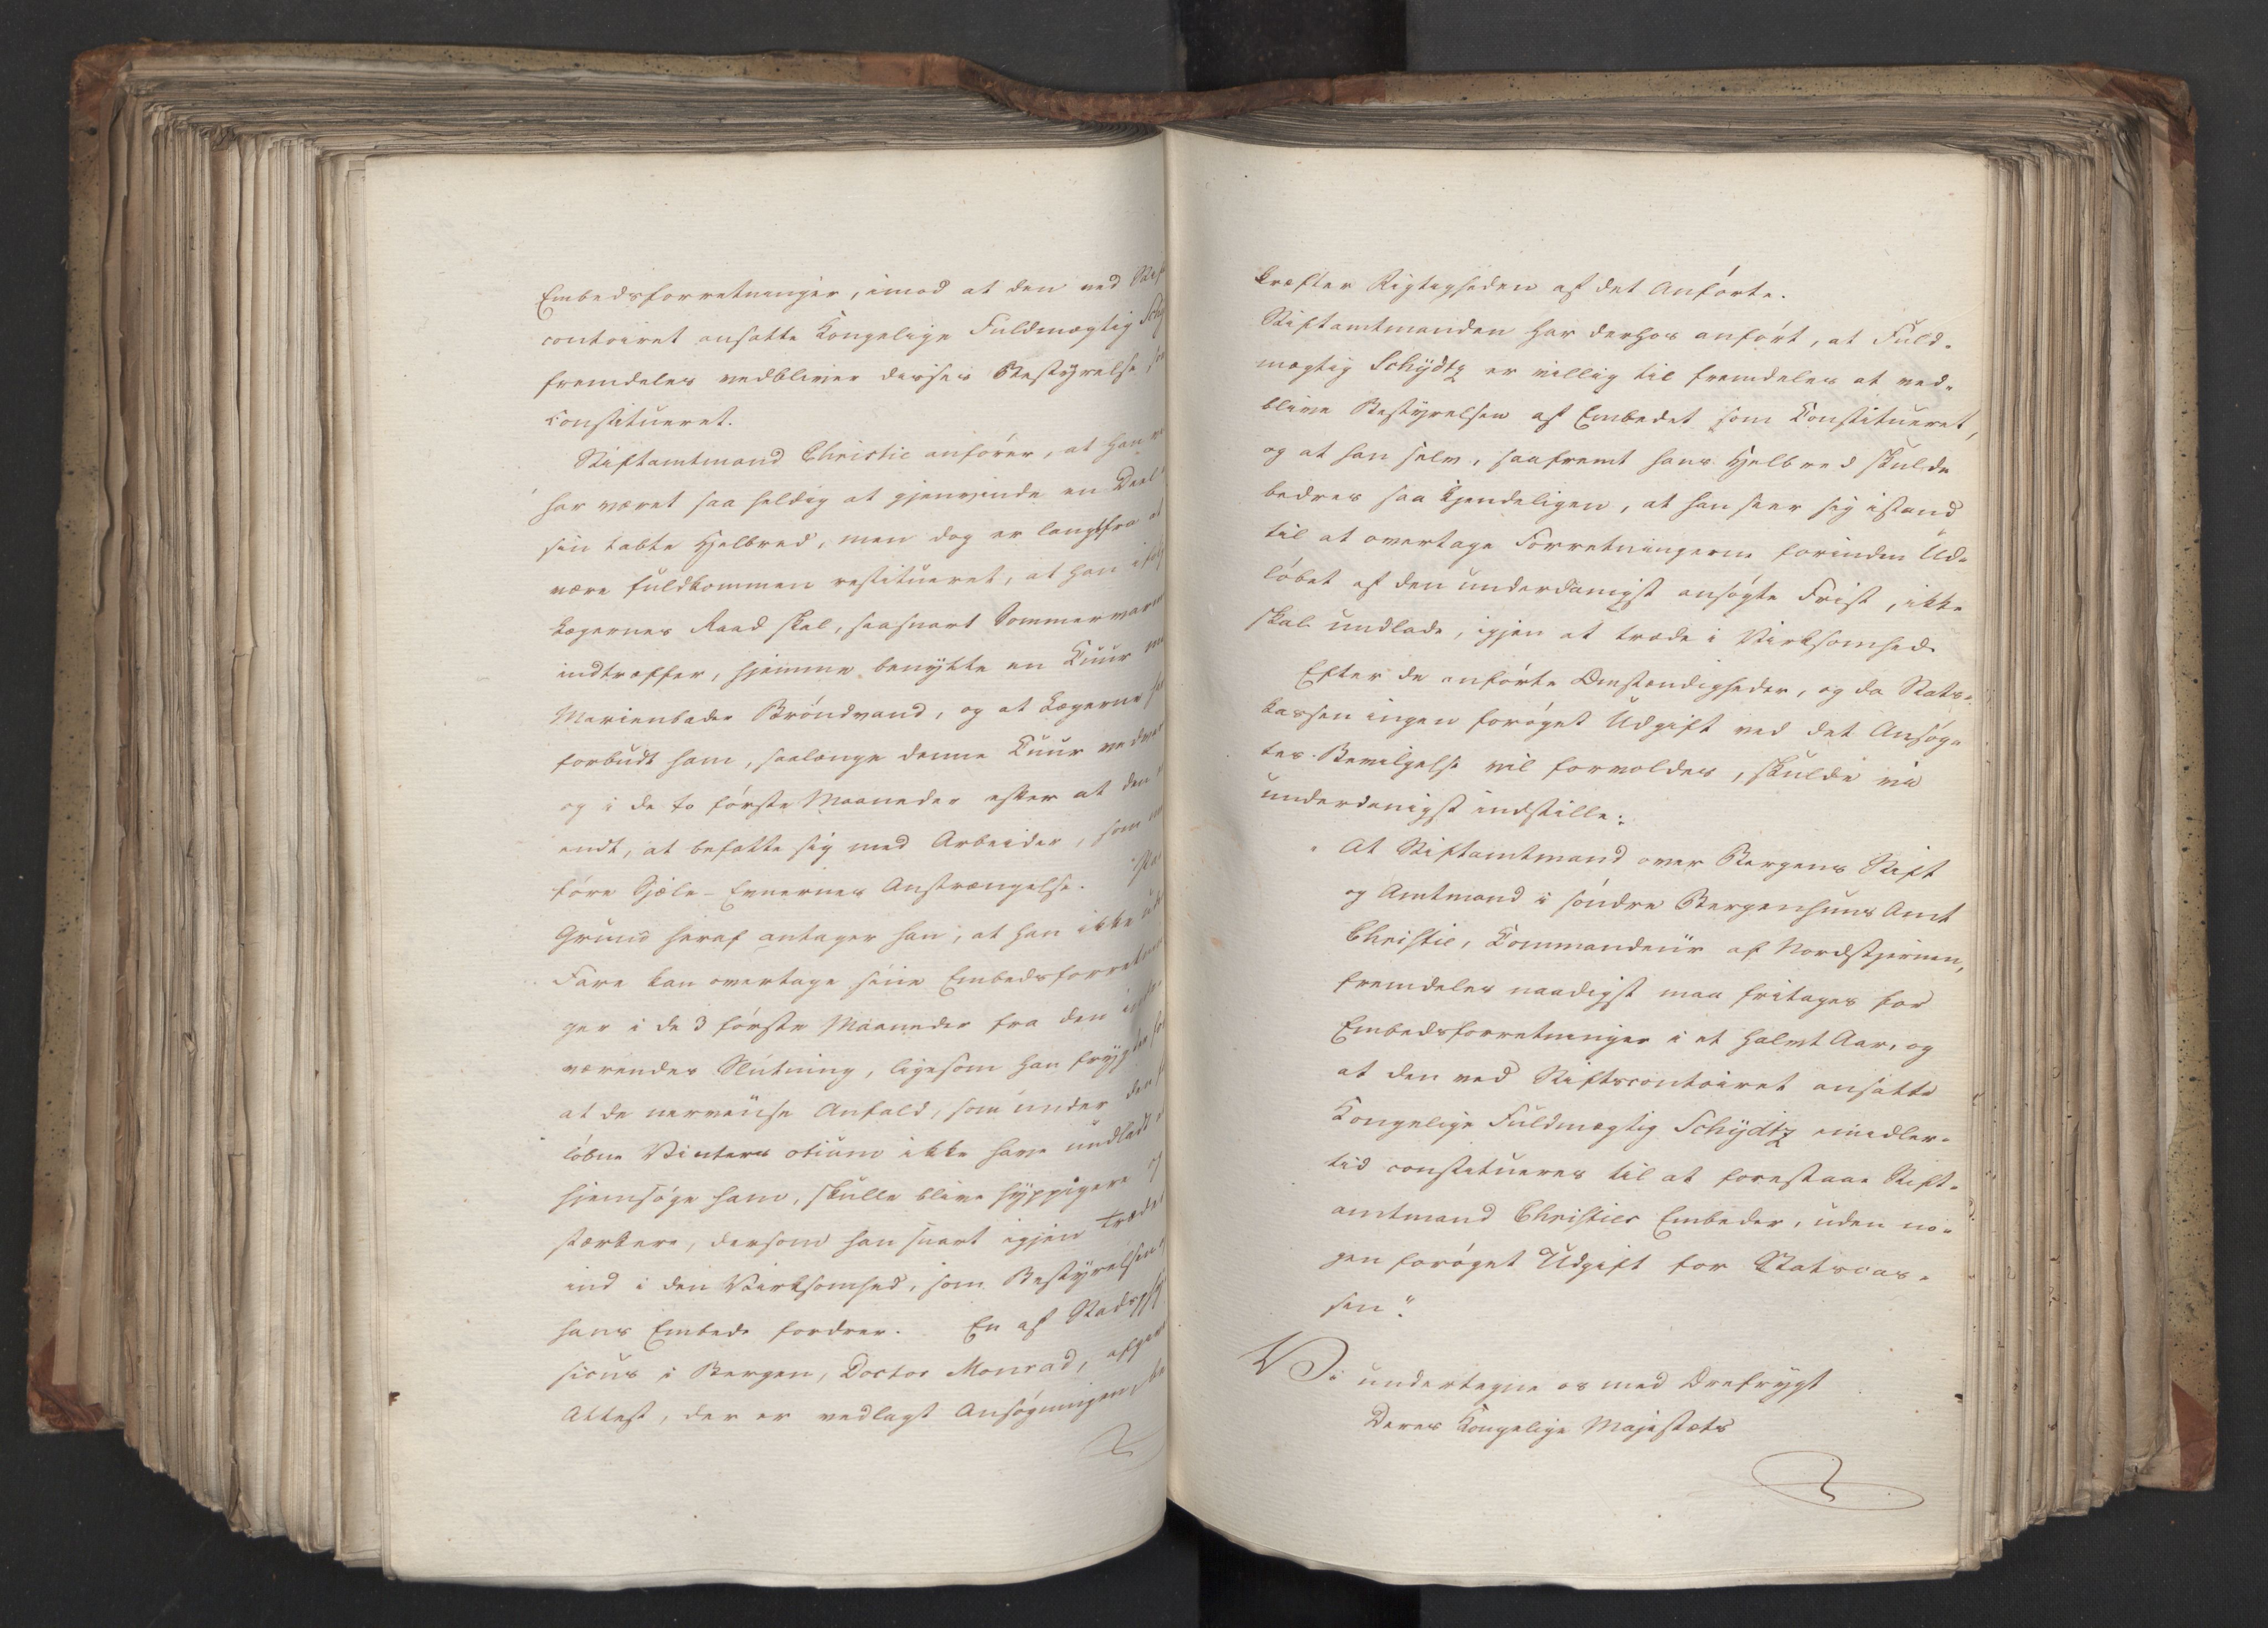 Embedsforretninger, imod at den ved Stift
contoiret ansatte Kongelige Fuldmægtig Schy
fremdeles vedbliver disses Bestyrelse, som
constitueret.
Stiftamtmand Christie anfører, at han vel
har været saa heldig at gjenvinde en Deel
sin tabte Helbred, men dog er langtfra at
være fuldkommen restitueret, at han ifølg
Lægernes Raad skal, saasnart Sommervarme
indtræffer, hjemme benytte en Kuur med
Marienbader Brøndvand, og at Lægerne har
forbudt ham, saalænge denne Kuur vedvarer
og i de to første Maaneder efter at den er
endt, at befatte sig med Arbeider, som med
føre Sjæls-Evnernes Anstrængelse. Paa
Grund heraf antager han, at han ikke uden
Fare kan overtage sine Embedsforretnin
ger i de 3 første Maaneder fra den inde
værendes Slutning, ligesom han frygter for
at de nerveuse Anfald, som under den for
løbne Vinters otium ikke have undladt at
hjemsøge ham, skulle blive hyppigere og
stærkere, dersom han snart igjen træder
ind i den Virksomhed, som Bestyrelsen af
hans Embede fordrer. En af Stadsphy
sicus i Bergen, Doctor Monrad, afgiven
Attest, der er vedlagt Ansøgningen, be
kræfter Rigtigheden af det Anførte.
Stiftamtmanden har derhos anført, at Fuld-
mægtig Schydtz er villig til fremdeles at ved-
blive Bestyrelsen af Embedet som Constitueret,
og at han selv, saafremt hans Helbred skulde
bedres saa kjendeligen, at han seer sig istand
til at overtage Forretningerne forinden Ud-
løbet af den underdanigst ansøgte Frist, ikke
skal undlade, igjen at træde i Virksomhed.
Efter de anførte Omstændigheder, og da Stats-
kassen ingen forøget Udgift ved det Ansøg-
tes Bevilgelse vil forvoldes, skulde vi
underdanigst indstille:
"At Stiftamtmand over Bergens Stift
og Amtmand i søndre Bergenhuus Amt
Christie, Commandeur af Nordstjernen,
fremdeles naadigst maa fritages for
Embedsforretninger i et halvt Aar, og
at den ved Stiftscontoiret ansatte
Kongelige Fuldmægtig Schydtz imidler-
tid constitueres til at forestaae Stift-
amtmand Christies Embeder, uden no-
gen forøget Udgift for Statscas-
sen".
Vi undertegne os med Ærefrygt
Deres Kongelige Majestæts